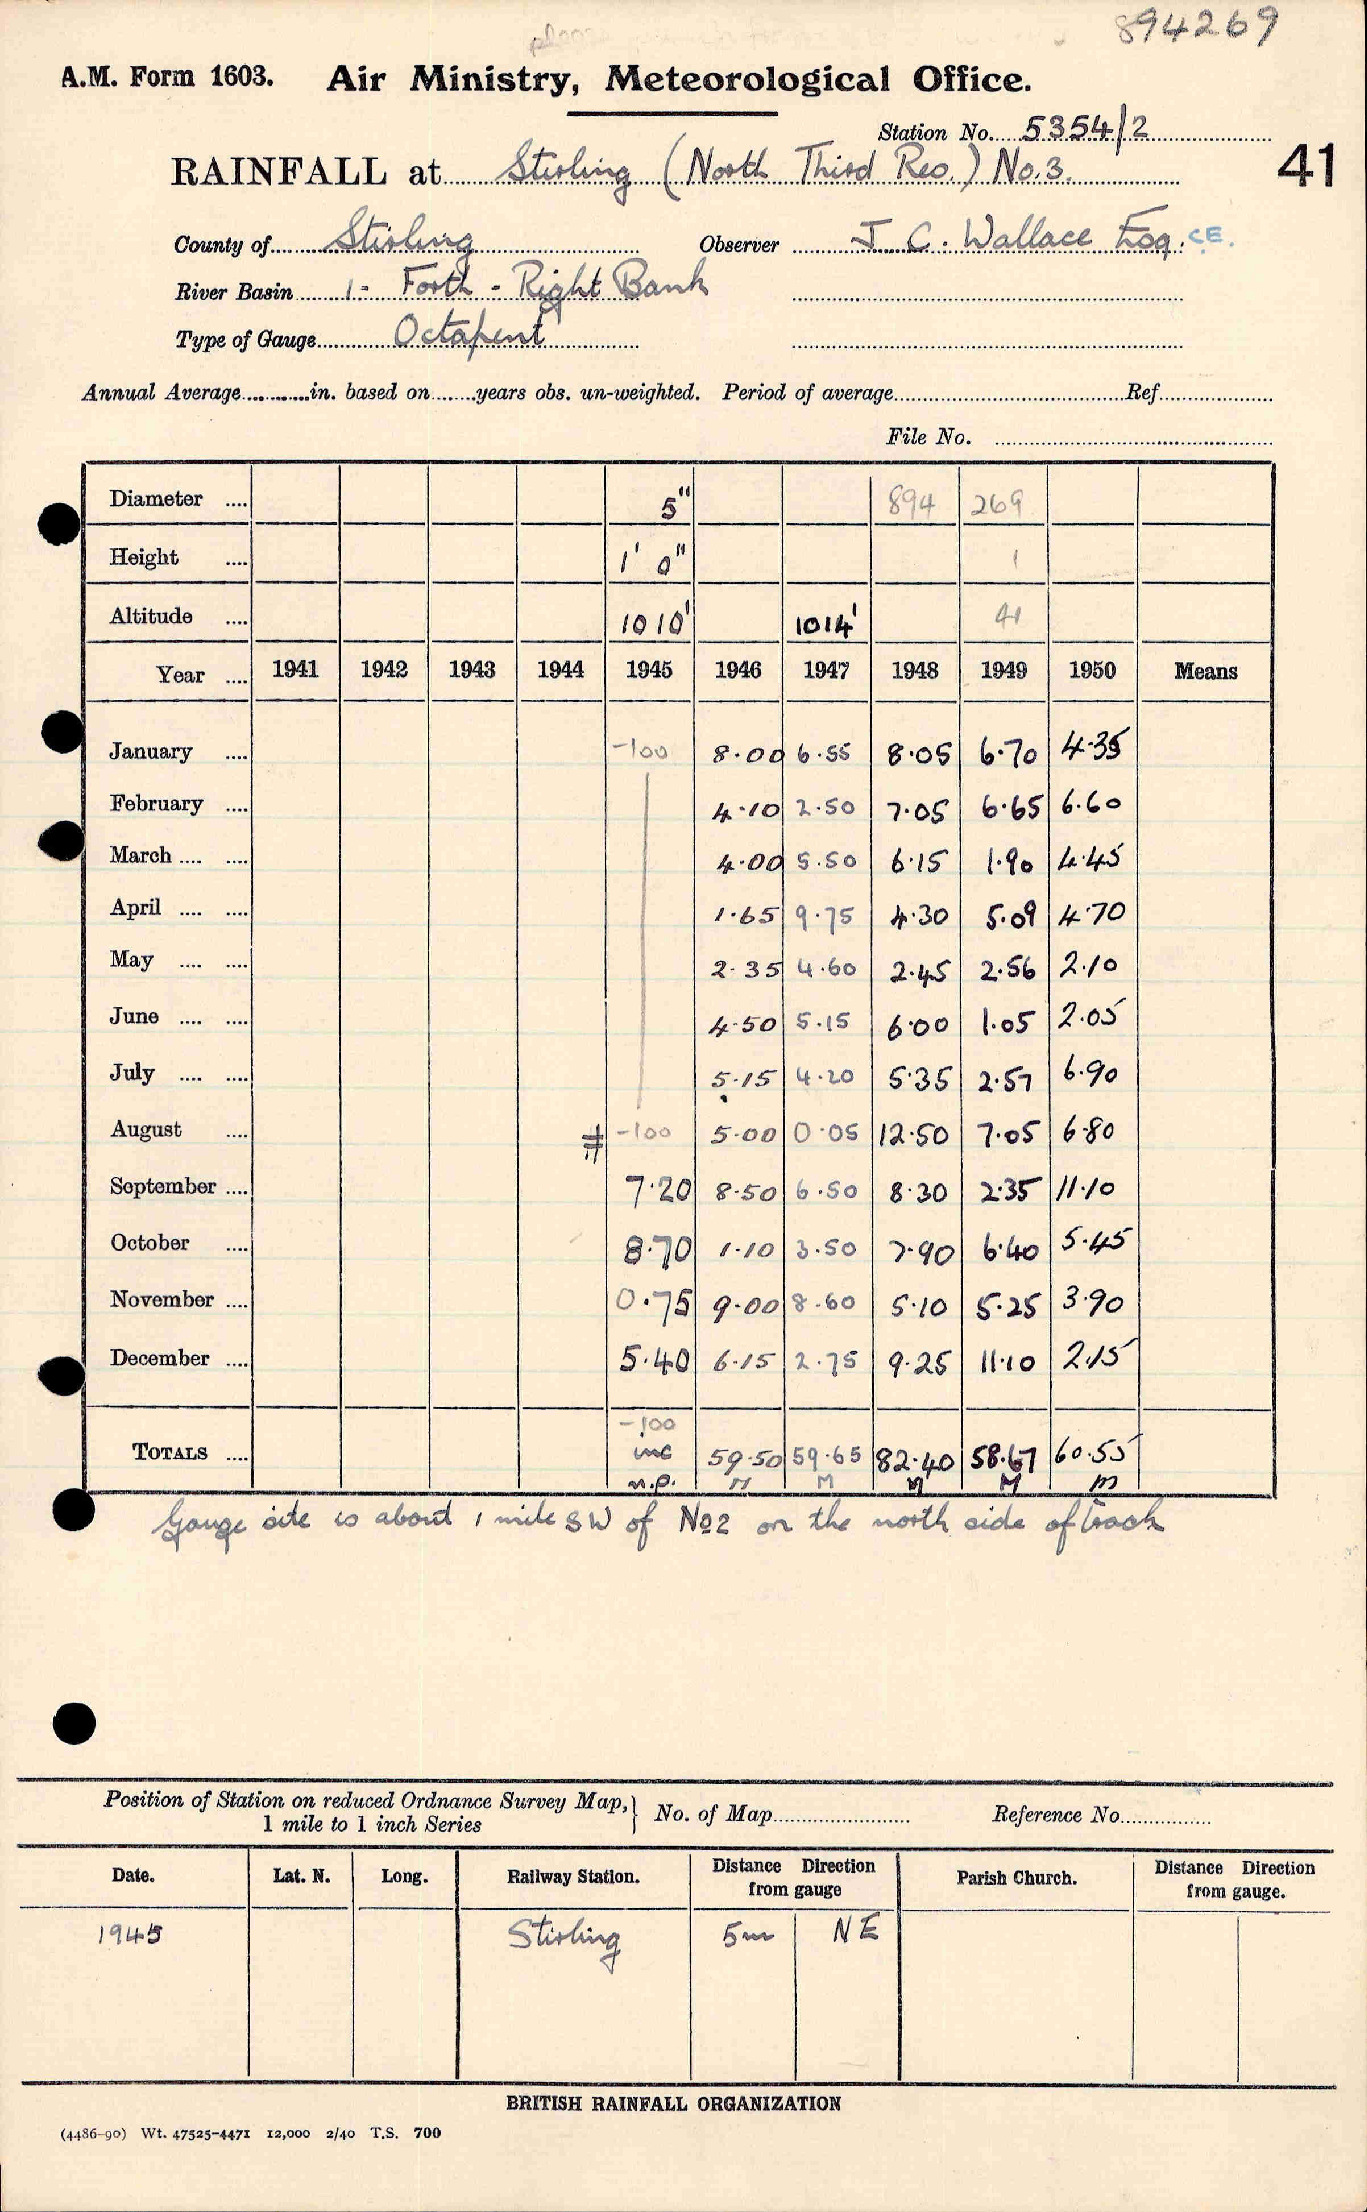 894269
A.M. Form 1603. Air Ministry, Meteorological Office.
Station No. 5354/2
RAINFALL at Stirling (North Third Res.) No. 3. 41
County of Stirling Observer J C. Wallace Esq. C.E.
River Basin 1- Forth - Right Bank
Type of Gauge Octapent
Annual Average in. based on years obs. un-weighted. Period of average Ref.
File No.
Diameter .... 5" 894 269
Height .... 1' 0" 1
Altitude .... 1010' 1014' 41
Year .... 1941 1942 1943 1944 1945 1946 1947 1948 1949 1950 Means
January .... -100 8.00 6.55 8.05 6.70 4.35
February .... 4.10 2.50 7.05 6.65 6.60
March .... .... 4.00 5.50 6.15 1.90 4.45
April .... .... 1.65 9.75 4.30 5.09 4.70
May .... .... 2.35 4.60 2.45 2.56 2.10
June .... .... 4.50 5.15 6.00 1.05 2.05
July .... .... 5.15 4.20 5.35 2.57 6.90
August .... # -100 5.00 0.05 12.50 7.05 6.80
September .... 7.20 8.50 6.50 8.30 2.35 11.10
October .... 8.70 1.10 3.50 7.90 6.40 5.45
November .... 0.75 9.00 8.60 5.10 5.25 3.90
December .... 5.40 6.15 2.75 9.25 11.10 2.15
-100
TOTALS .... inc 59.50 59.65 82.40 58.67 60.55
n.p. M M M M M
Gauge site is about 1 mile SW of No 2 on the north side of track
Position of Station on reduced Ordnance Survey Map, } No. of Map Reference No.
1 mile to 1 inch Series
Date. Lat. N. Long. Railway Station. Distance Direction from gauge Parish Church. Distance Direction from gauge.
1945 Stirling 5m NE
BRITISH RAINFALL ORGANIZATION
(4486-90) Wt. 47525-4471 12,000 2/40 T.S. 700